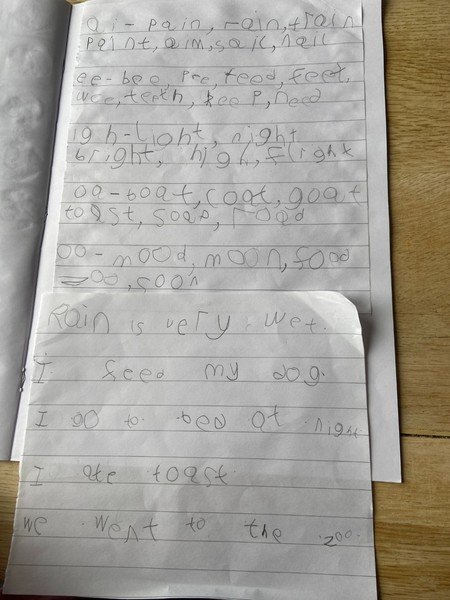 ai - pain, rain, train
paint, aim, sail, nail
ee - bee, feed, feet,
wee, teeth, keep, need
igh - light, night
bright, high, flight
oa - boat, coat, goat
toast, soap, road
oo - mood, moon, food
zoo, soon
Rain is very wet.
I feed my dog.
I go to bed at night.
I ate toast.
we went to the zoo.